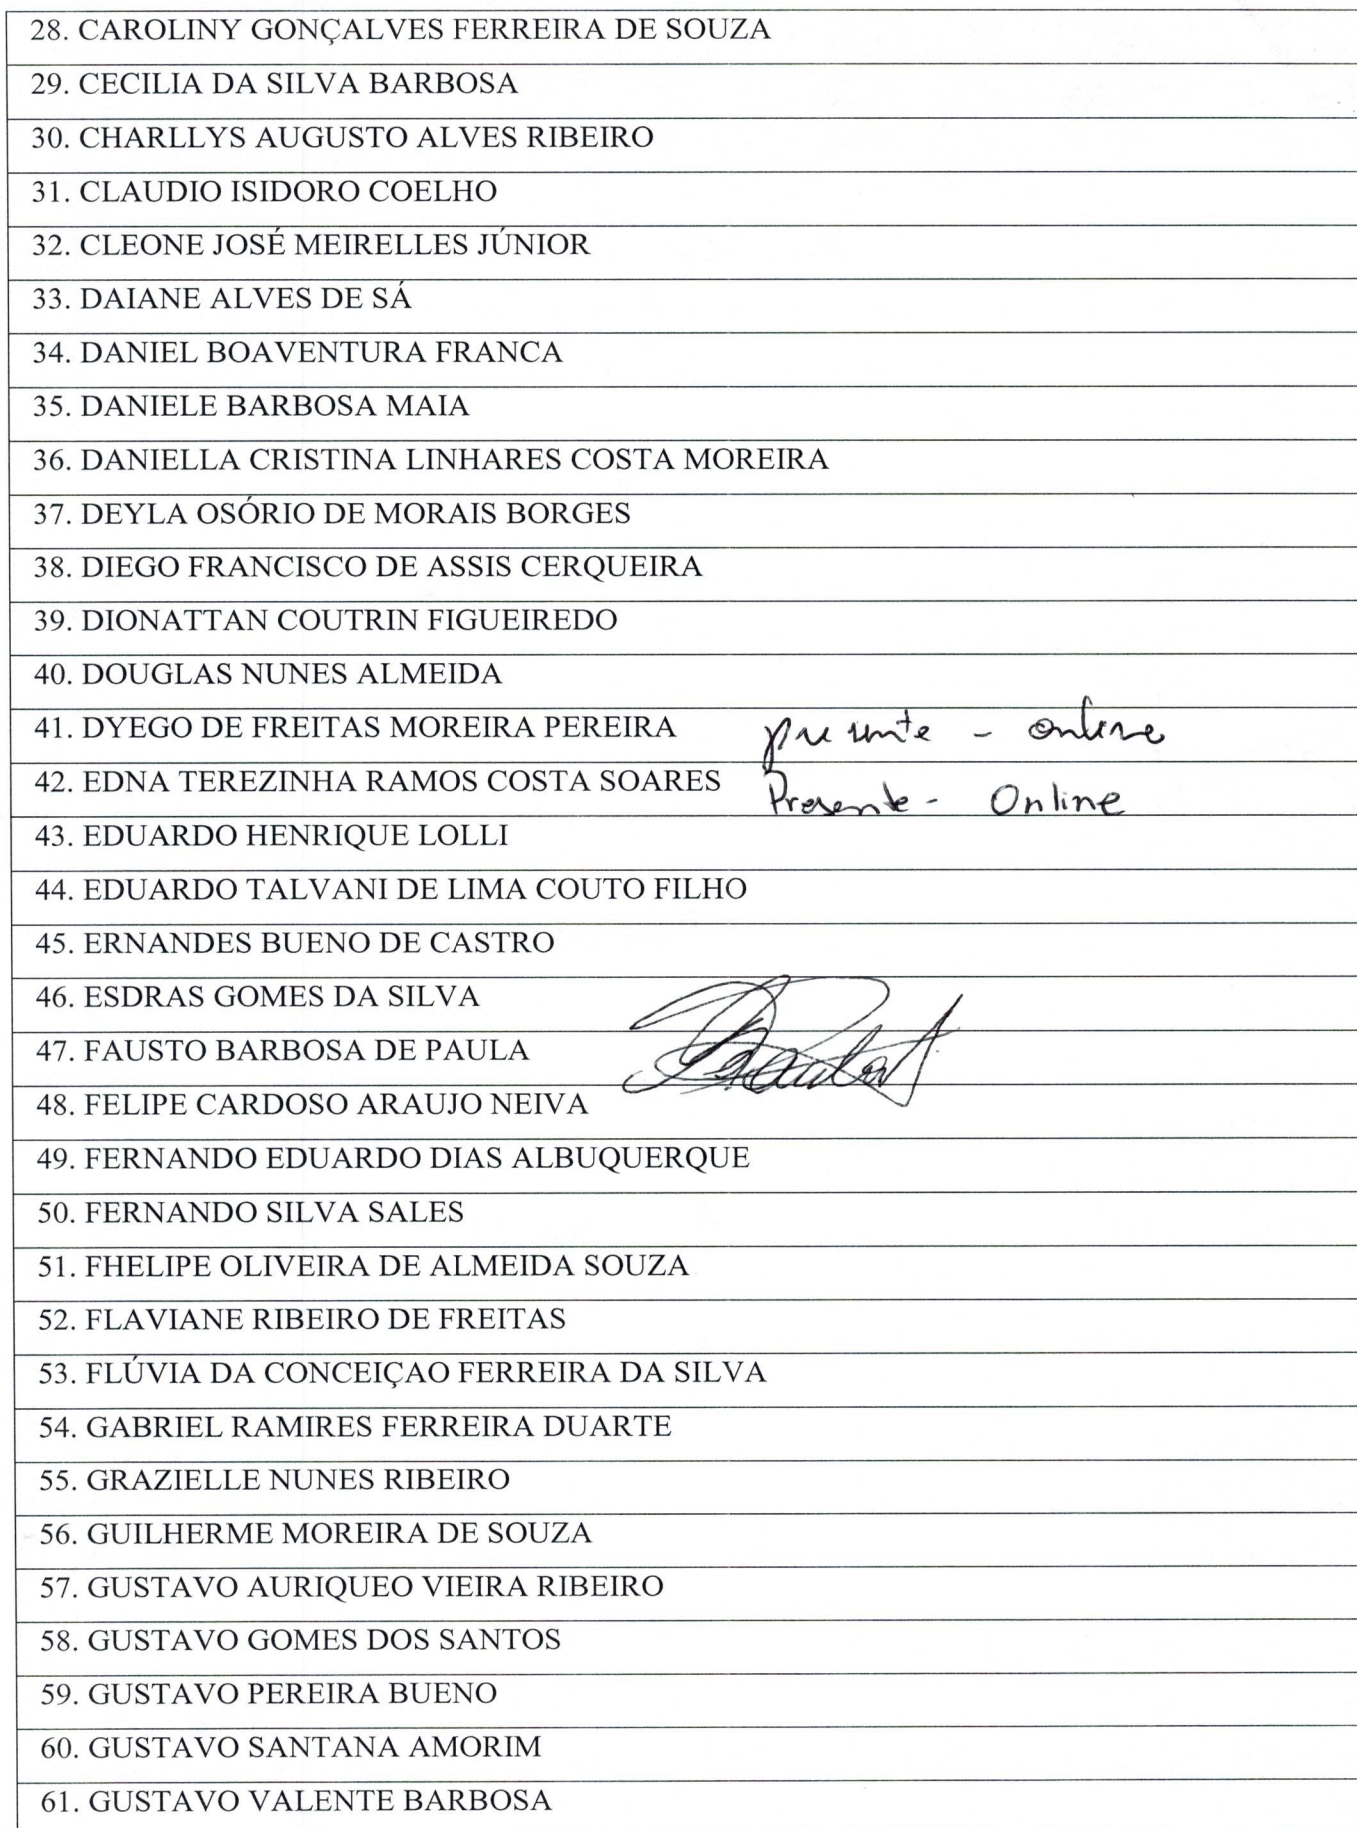 28. CAROLINY GONÇALVES FERREIRA DE SOUZA
29. CECILIA DA SILVA BARBOSA
30. CHARLLYS AUGUSTO ALVES RIBEIRO
31. CLAUDIO ISIDORO COELHO
32. CLEONE JOSÉ MEIRELLES JÚNIOR
33. DAIANE ALVES DE SÁ
34. DANIEL BOAVENTURA FRANCA
35. DANIELE BARBOSA MAIA
36. DANIELLA CRISTINA LINHARES COSTA MOREIRA
37. DEYLA OSÓRIO DE MORAIS BORGES
38. DIEGO FRANCISCO DE ASSIS CERQUEIRA
39. DIONATTAN COUTRIN FIGUEIREDO
40. DOUGLAS NUNES ALMEIDA
41. DYEGO DE FREITAS MOREIRA PEREIRA presente - online
42. EDNA TEREZINHA RAMOS COSTA SOARES Presente - Online
43. EDUARDO HENRIQUE LOLLI
44. EDUARDO TALVANI DE LIMA COUTO FILHO
45. ERNANDES BUENO DE CASTRO
46. ESDRAS GOMES DA SILVA
47. FAUSTO BARBOSA DE PAULA
48. FELIPE CARDOSO ARAUJO NEIVA
49. FERNANDO EDUARDO DIAS ALBUQUERQUE
50. FERNANDO SILVA SALES
51. FHELIPE OLIVEIRA DE ALMEIDA SOUZA
52. FLAVIANE RIBEIRO DE FREITAS
53. FLÚVIA DA CONCEIÇAO FERREIRA DA SILVA
54. GABRIEL RAMIRES FERREIRA DUARTE
55. GRAZIELLE NUNES RIBEIRO
56. GUILHERME MOREIRA DE SOUZA
57. GUSTAVO AURIQUEO VIEIRA RIBEIRO
58. GUSTAVO GOMES DOS SANTOS
59. GUSTAVO PEREIRA BUENO
60. GUSTAVO SANTANA AMORIM
61. GUSTAVO VALENTE BARBOSA